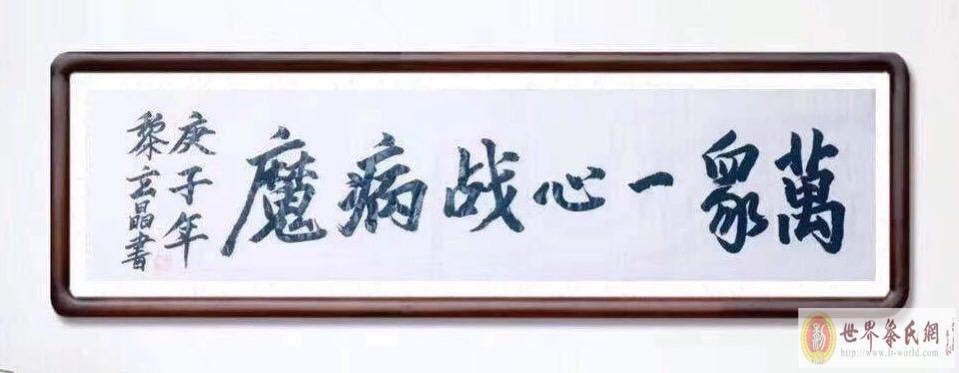 萬眾一心战病魔
庚子年
黎玄晶書
世界黎氏網
http://www.li-world.com